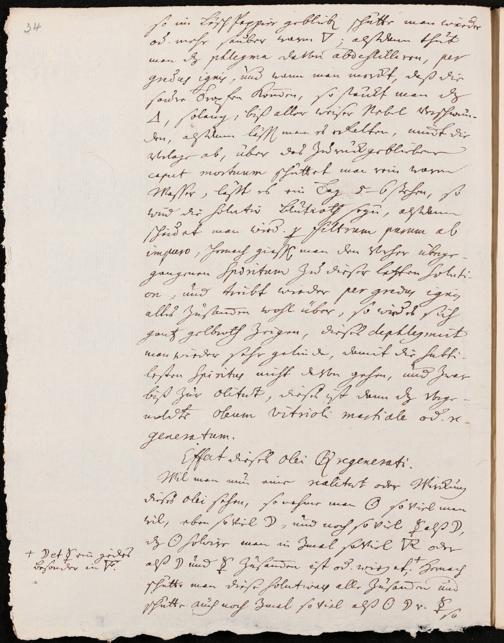 34
so im Lösch Papier geblieben schütte man wieder
od. mehr sauber warm 🜄; alsdann thut
man dz phlegma davon abdestilliren, per
gradus ignis, und wann man merckt, daß die
Tropfen kommen, so stärckt man dz
🜂, solang, biß aller weiser Nebel verschwun-
den, alsdann läßt man es erkalten, nimbt die
Vorlage ab, über das Zurückgebliebene
caput mortuum schüttet man rein warm
Wasser, läßt es ein Tag 5-6 stehen, so
wird die Solution blutroth seyn, alsdann
scheidet man wird. p filtrum purum ab
impuro, hernach gießt man den vorher überge-
gangenen Spiritum zu dieser letzten Soluti-
on, und treibt wieder per gradus ignis
alles zusamen wohl über, so wird es sich
gantz gelbroth zeigen, dieses dephlegmirt
man wieder sehr gelinde, damit die subti-
lesten Spiritus nicht davon gehen, und zwar
biß zur olitet, dieses ist dann dz
oleum vitrioli martiale od. re-
generatum.
Effect dieses Olei regenerati.
Wil man nun eine realitet oder Würckung
dieses Olei sehen, so nehme man ☉ so viel man
wil, eben so viel ☽, und noch so viel ☿ alß ☽,
dz ☉ solvire man in 3mal so viel 🜆 oder
alß ☽ und ☿ zusamen ist od. wigt +. hernach
schütte man diese solutiones alle zusamen und
schütte auch noch 3mal so viel alß ☉ ☽ ☿
so
+ Det ☿ ein jedes
besonder in 🜅.